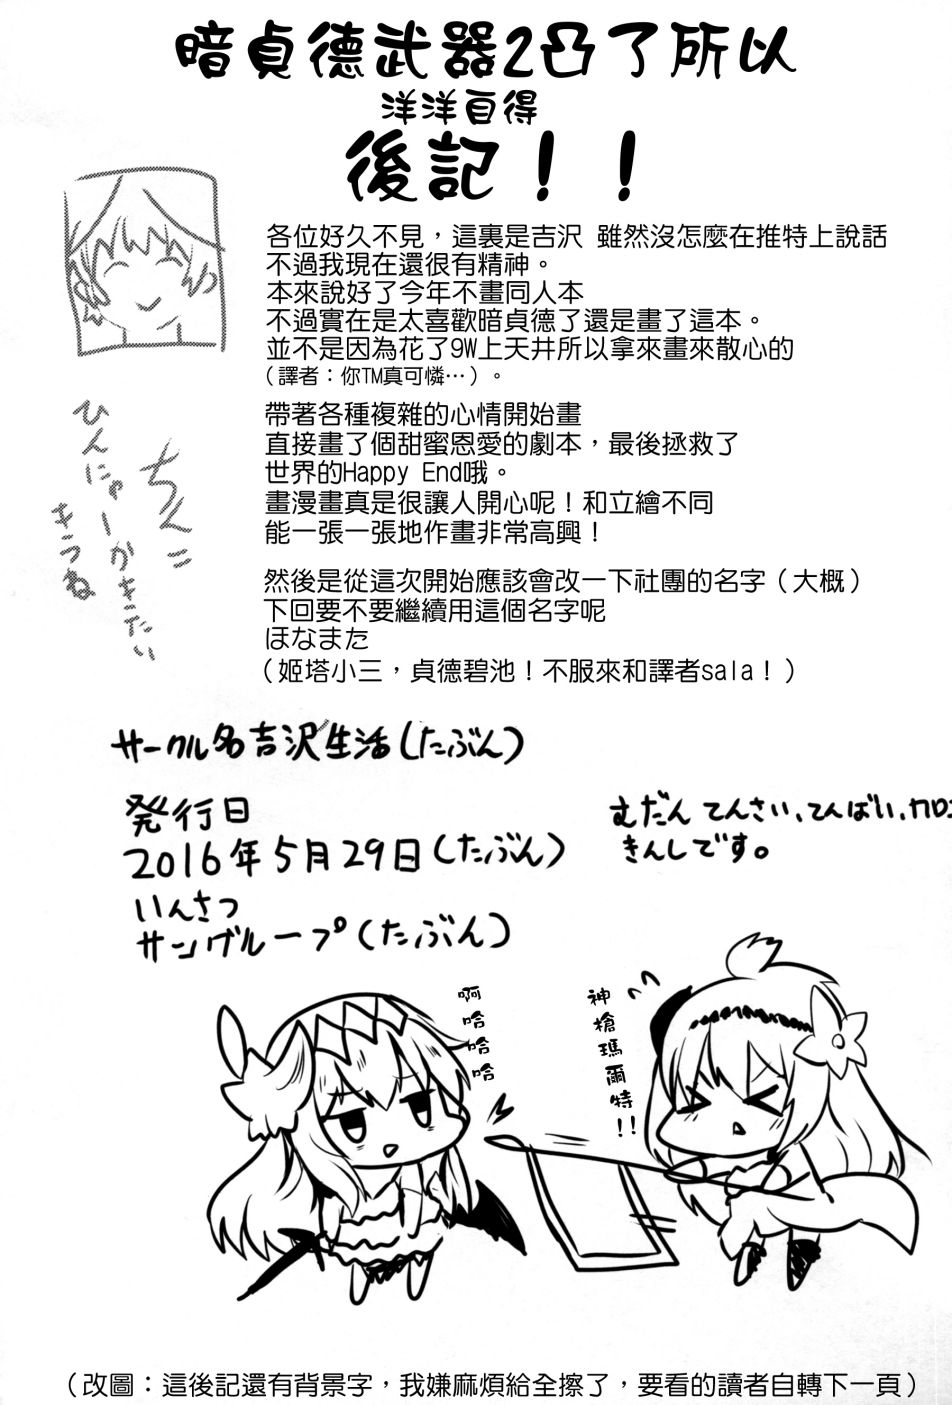 暗貞德武器2凸了所以
洋洋自得
後記！！
各位好久不見，這裏是吉沢 雖然沒怎麼在推特上說話
不過我現在還很有精神。
本來說好了今年不畫同人本
不過實在是太喜歡暗貞德了還是畫了這本。
並不是因為花了9W上天井所以拿來畫來散心的
（譯者：你TM真可憐…）。
帶著各種複雜的心情開始畫
直接畫了個甜蜜恩愛的劇本，最後拯救了
世界的Happy End哦。
畫漫畫真是很讓人開心呢！和立繪不同
能一張一張地作畫非常高興！
然後是從這次開始應該會改一下社團的名字（大概）
下回要不要繼續用這個名字呢
ほなまた
（姬塔小三，貞德碧池！不服來和譯者sala！）
ちんこ
ひんにゃーかきたい
きつね
サークル名吉沢生活(たぶん)
発行日
2016年5月29日(たぶん)
いんさつ
サングループ(たぶん)
むだん てんさい、てんばい、
きんしです。
啊哈哈哈
神槍瑪爾特!!
（改圖：這後記還有背景字，我嫌麻煩給全擦了，要看的讀者自轉下一頁）